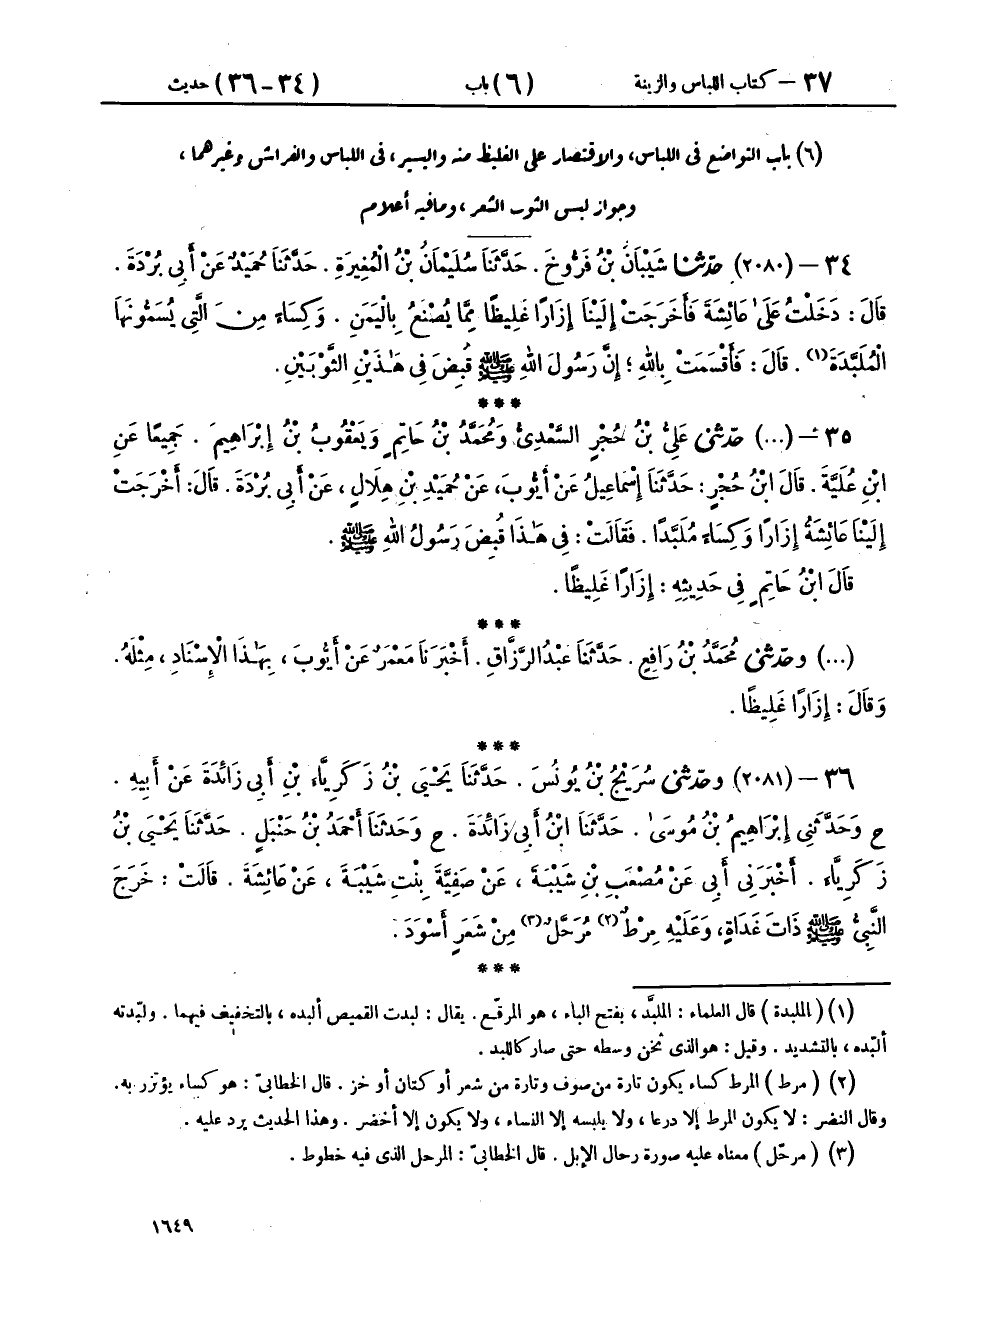 ٣٧ – كتاب اللباس والزينة (٦) باب (٣٤-٣٦) حديث
(٦) باب التواضع فى اللباس، والاقتصار على الغليظ منه واليسير، فى اللباس والفراش وغيرهما،
وجواز لبس الثوب الشعر، ومافيه أعلام
٣٤ – (٢٠٨٠) حَدَّثَنَا شَيْبَانُ بْنُ فَرُّوخَ . حَدَّثَنَا سُلَيْمَانُ بْنُ الْمُغِيرَةِ . حَدَّثَنَا حُمَيْدٌ عَنْ أَبِى بُرْدَةَ .
قَالَ : دَخَلْتُ عَلَىٰ عَائِشَةَ فَأَخْرَجَتْ إِلَيْنَا إِزَارًا غَلِيظًا مِمَّا يُصْنَعُ بِالْيَمَنِ . وَكِسَاءً مِنَ الَّتِى يُسَمُّونَهَا
الْمُلَبَّدَةَ(١) . قَالَ : فَأَقْسَمَتْ بِاللهِ ؛ إِنَّ رَسُولَ اللهِ ﷺ قُبِضَ فِى هَٰذَيْنِ الثَّوْبَيْنِ .
***
٣٥ – (...) حَدَّثَنِى عَلِىُّ بْنُ حُجْرٍ السَّعْدِىُّ وَمُحَمَّدُ بْنُ حَاتِمٍ وَيَعْقُوبُ بْنُ إِبْرَاهِيمَ . جَمِيعًا عَنِ
ابْنِ عُلَيَّةَ . قَالَ ابْنُ حُجْرٍ : حَدَّثَنَا إِسْمَاعِيلُ عَنْ أَيُّوبَ، عَنْ حُمَيْدِ بْنِ هِلَالٍ ، عَنْ أَبِى بُرْدَةَ . قَالَ : أَخْرَجَتْ
إِلَيْنَا عَائِشَةُ إِزَارًا وَكِسَاءً مُلَبَّدًا . فَقَالَتْ : فِى هَٰذَا قُبِضَ رَسُولُ اللهِ ﷺ .
قَالَ ابْنُ حَاتِمٍ فِى حَدِيثِهِ : إِزَارًا غَلِيظًا .
***
(...) وحَدَّثَنِى مُحَمَّدُ بْنُ رَافِعٍ . حَدَّثَنَا عَبْدُ الرَّزَّاقِ . أَخْبَرَنَا مَعْمَرٌ عَنْ أَيُّوبَ ، بِهَٰذَا الْإِسْنَادِ ، مِثْلَهُ .
وَقَالَ : إِزَارًا غَلِيظًا .
***
٣٦ – (٢٠٨١) وحَدَّثَنِى سُرَيْجُ بْنُ يُونُسَ . حَدَّثَنَا يَحْيَى بْنُ زَكَرِيَّاءَ بْنِ أَبِى زَائِدَةَ عَنْ أَبِيهِ .
ح وَحَدَّثَنِى إِبْرَاهِيمُ بْنُ مُوسَىٰ . حَدَّثَنَا ابْنُ أَبِى زَائِدَةَ . ح وَحَدَّثَنَا أَحْمَدُ بْنُ حَنْبَلٍ . حَدَّثَنَا يَحْيَى بْنُ
زَكَرِيَّاءَ . أَخْبَرَنِى أَبِى عَنْ مُصْعَبِ بْنِ شَيْبَةَ ، عَنْ صَفِيَّةَ بِنْتِ شَيْبَةَ ، عَنْ عَائِشَةَ . قَالَتْ : خَرَجَ
النَّبِىُّ ﷺ ذَاتَ غَدَاةٍ، وَعَلَيْهِ مِرْطٌ(٢) مُرَحَّلٌ(٣) مِنْ شَعَرٍ أَسْوَدَ .
***
(١) ( الملبدة ) قال العلماء : الملبَّد ، بفتح الباء ، هو المرقّع . يقال : لبدت القميص ألبده ، بالتخفيف فيهما . ولبّدته
ألبّده ، بالتشديد . وقيل : هو الذى ثخن وسطه حتى صار كاللبد .
(٢) ( مرط ) المرط كساء يكون تارة من صوف وتارة من شعر أو كتان أو خز . قال الخطابىّ : هو كساء يؤتزر به .
وقال النضر : لا يكون المرط إلا درعا ، ولا يلبسه إلا النساء ، ولا يكون إلا أخضر . وهذا الحديث يرد عليه .
(٣) ( مرحّل ) معناه عليه صورة رحال الإبل . قال الخطابىّ : المرحل الذى فيه خطوط .
١٦٤٩